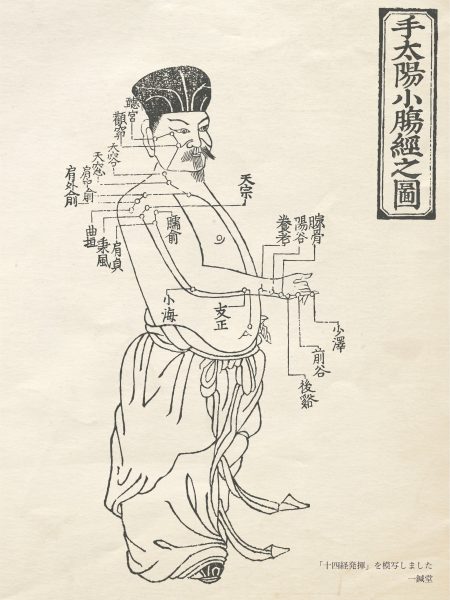 手太陽小膓經之圖
聽宮
顴窌
天容
天窓
肩中俞
肩外俞
天宗
臑俞
曲垣
秉風
肩貞
養老
陽谷
腕骨
小海
支正
少澤
前谷
後谿
「十四経発揮」を模写しました
一鍼堂